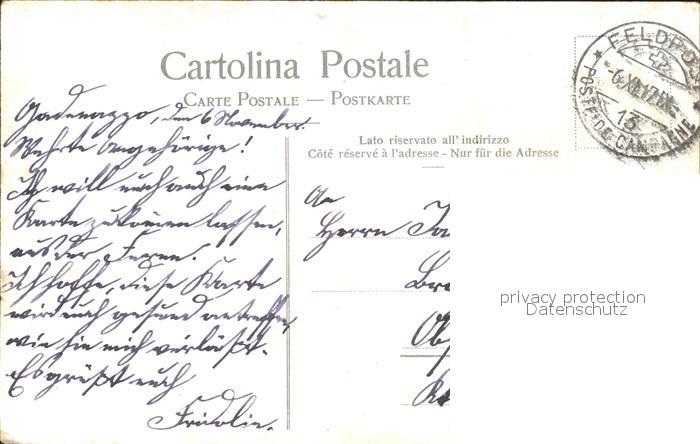 Cartolina Postale
CARTE POSTALE — POSTKARTE
Lato riservato all' indirizzo
Côté réservé à l'adresse - Nur für die Adresse
FELDPOST
-6.XI.17.IX
13
POSTE DE CAMPAGNE
Gadenazzo, den 6 November.
Wehrte Angehörige!
Ich will euch auch eine
Karte zukommen lassen,
aus der Ferne.
Ich hoffe, diese Karte
wird euch gesund antreffen,
wie sie mich verläßt.
Es grüßt euch
Fridolin.
An
Herrn
privacy protection
Datenschutz